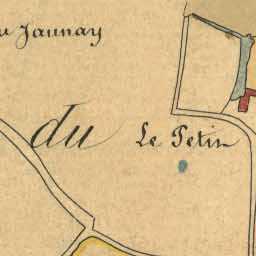 Jaunay
du
Le Petin